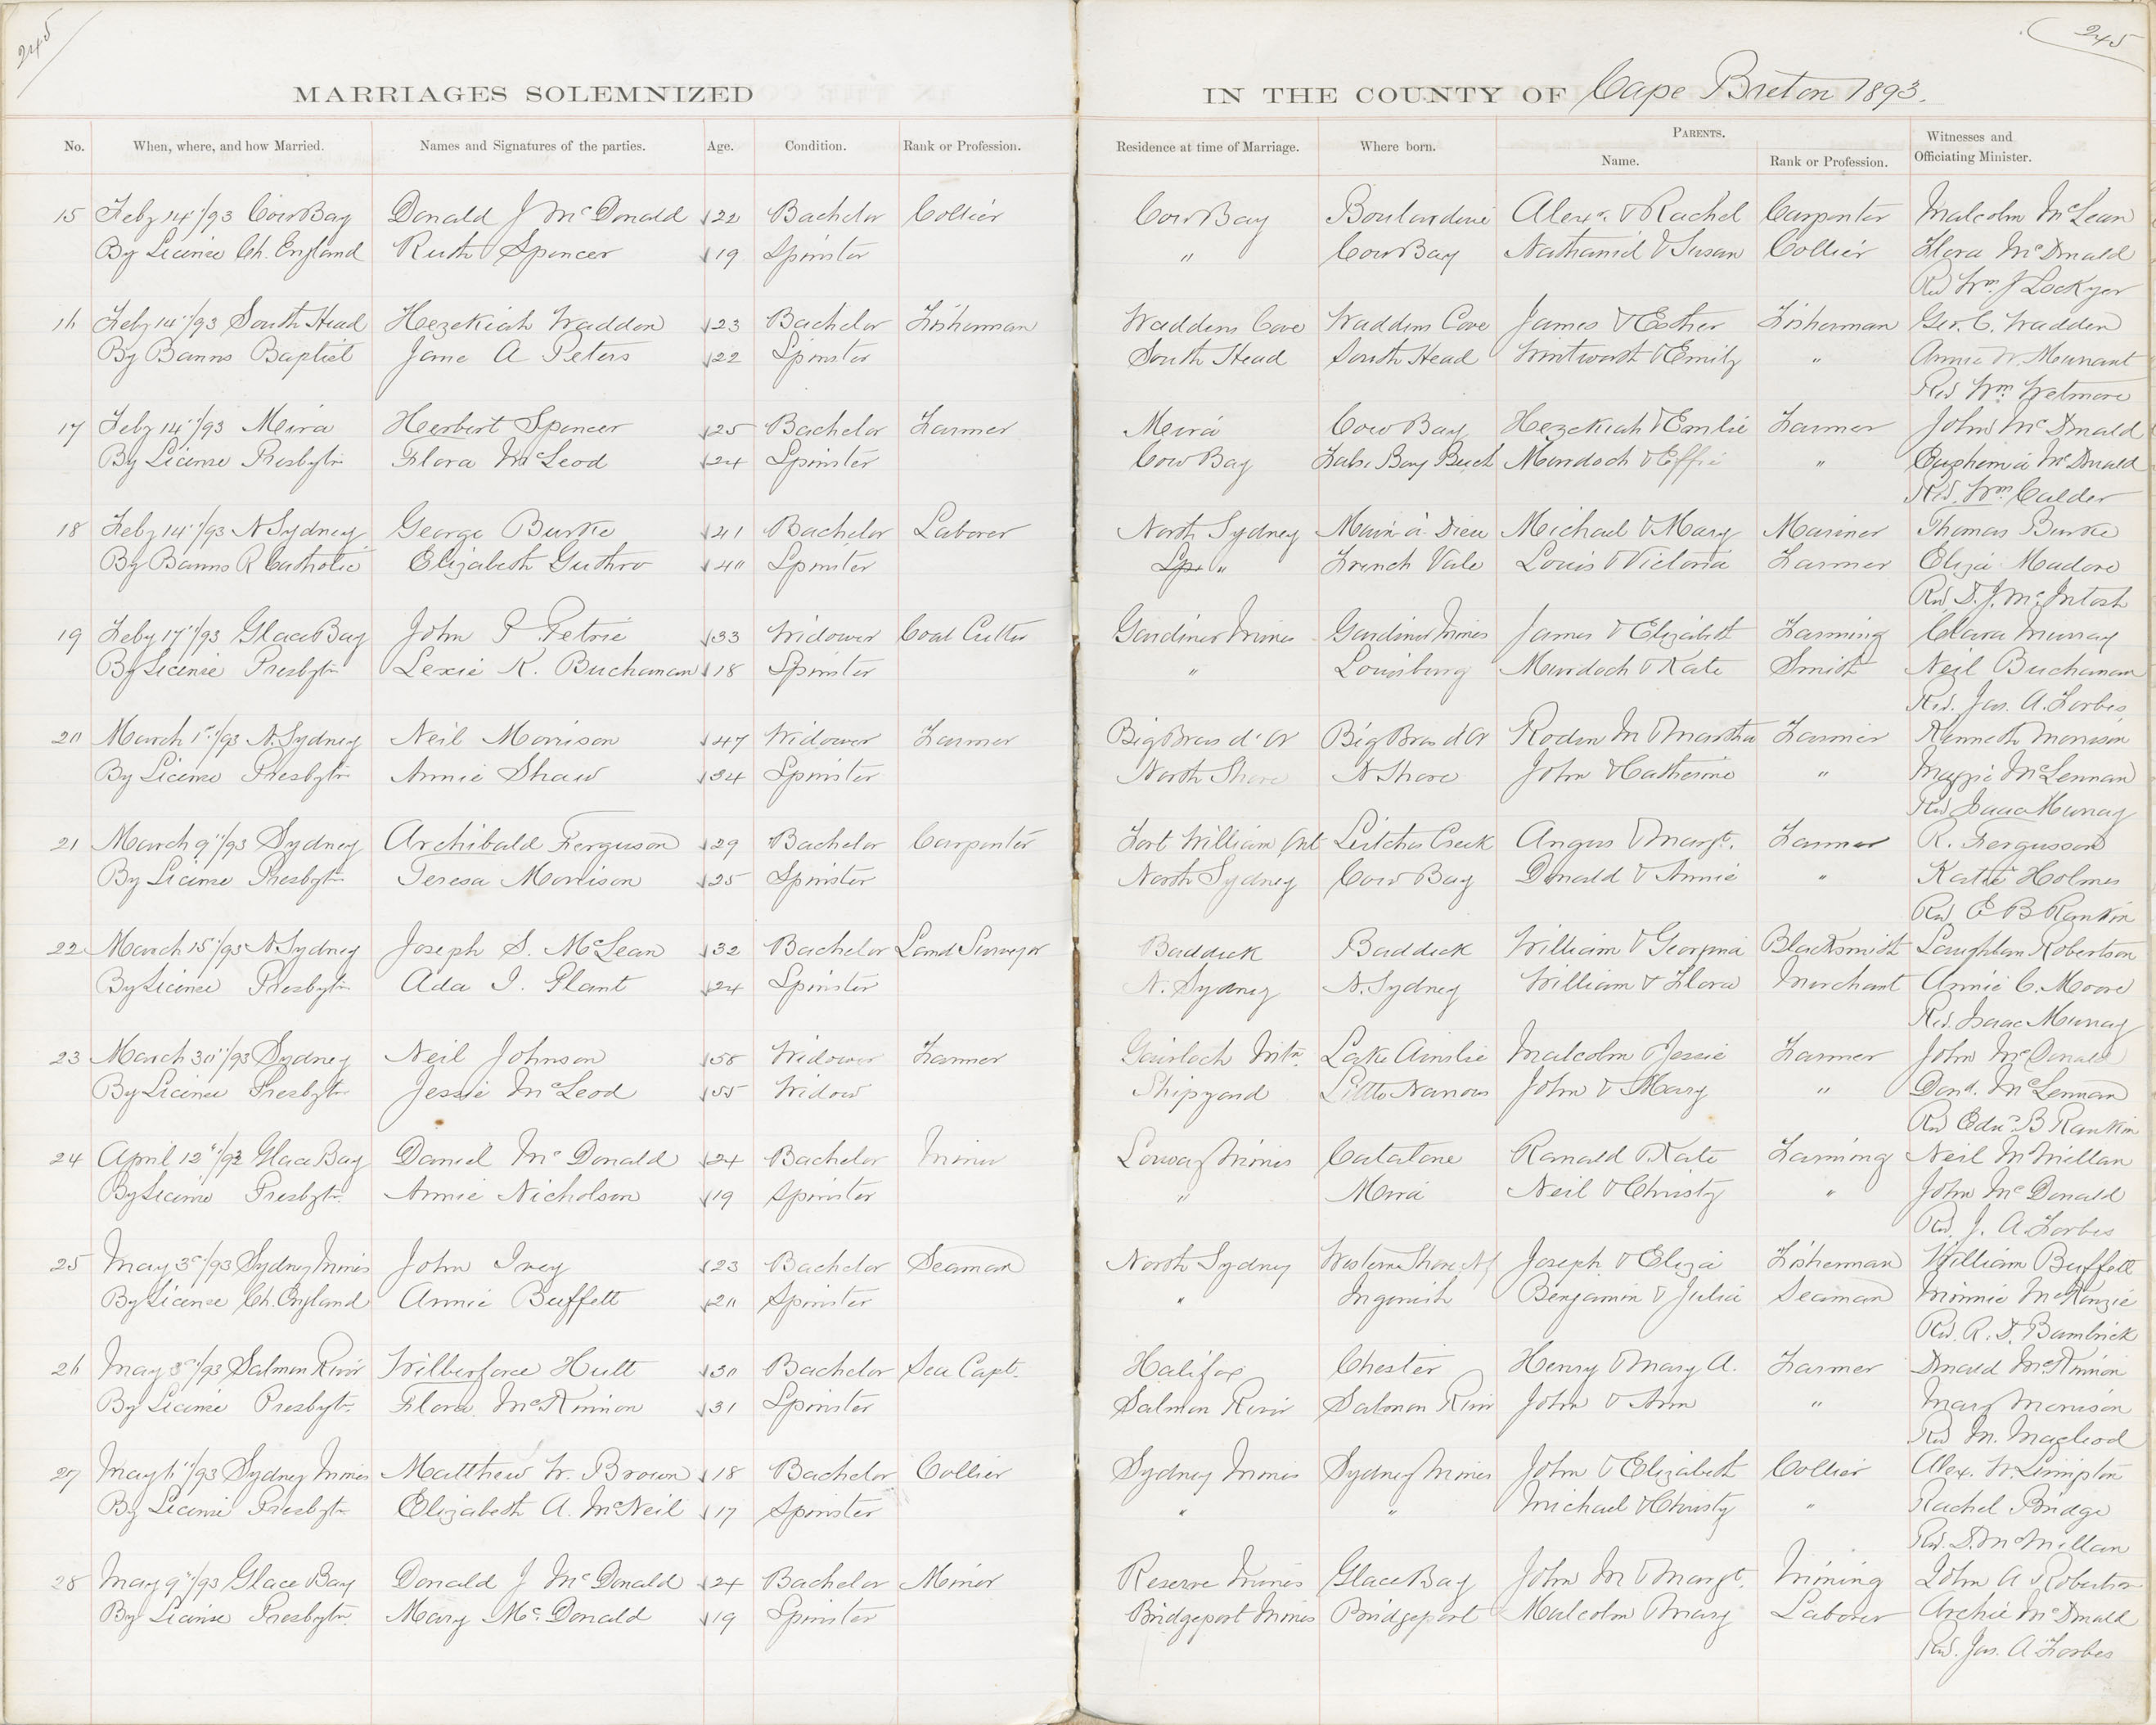 245
245
MARRIAGES SOLEMNIZED IN THE COUNTY OF Cape Breton 1893.
No. When, where, and how Married. Names and Signatures of the parties. Age. Condition. Rank or Profession. Residence at time of Marriage. Where born. PARENTS. Name. Rank or Profession. Witnesses and Officiating Minister.
15 Feby 14"/93 Cow Bay Donald J McDonald 22 Bachelor Collier Cow Bay Boulardrie Alexr. & Rachel Carpenter Malcolm McLean
By License Ch. England Ruth Spencer 19 Spinster " Cow Bay Nathaniel & Susan Collier Flora McDonald
Rev Wm. J Lockyer
16 Feby 14"/93 South Head Hezekiah Wadden 23 Bachelor Fisherman Waddens Cove Waddens Cove James & Esther Fisherman Geo. C. Wadden
By Banns Baptist Jane A Peters 22 Spinster South Head South Head Wintworth & Emily " Annie W.
Rev Wm Wetmore
17 Feby 14"/93 Mira Herbert Spencer 25 Bachelor Farmer Mira Cow Bay Hezekiah & Emilie Farmer John McDonald
By License Presbytn Flora McLeod 24 Spinster Cow Bay False Bay Beach Murdoch & Effie " Euphemia McDonald
Rev. Wm Calder
18 Feby 14"/93 N Sydney George Burke 41 Bachelor Laborer North Sydney Main a Dieu Michael & Mary Mariner Thomas Burke
By Banns R Catholic Elizabeth Guthro 40 Spinster " French Vale Louis & Victoria Farmer Eliza Madore
Rev D. J. McIntosh
19 Feby 17"/93 Glace Bay John P Petrie 33 Widower Coal Cutter Gardiner Mines Gardiner Mines James & Elizabeth Farming Clara Murray
By License Presbytn Lexie K. Buchanan 18 Spinster " Louisburg Murdoch & Kate Smith Neil Buchanan
Rev. Jas. A. Forbes
20 March 1st/93 N. Sydney Neil Morrison 47 Widower Farmer Big Bras d'Or Big Bras d'Or Rodk M & Martha Farmer Kenneth Morrison
By License Presbytn Annie Shaw 34 Spinster North Shore N Shore John & Catherine " Maggie McLennan
Rev Isaac Murray
21 March 9"/93 Sydney Archibald Ferguson 29 Bachelor Carpenter Fort William Ont Leitches Creek Angus & Margt. Farmer R. Fergusson
By License Presbytn Teresa Morrison 25 Spinster North Sydney Cow Bay Donald & Annie " Katie Holmes
Rev E B Rankin
22 March 15"/93 N. Sydney Joseph S. McLean 32 Bachelor Land Surveyor Baddeck Baddeck William & Georgina Blacksmith Laughlan Robertson
By License Presbytn Ada I. Plant 24 Spinster N. Sydney N. Sydney William & Flora Merchant Annie C. Moore
Rev. Isaac Murray
23 March 30"/93 Sydney Neil Johnson 58 Widower Farmer Gairloch Mtn. Lake Ainslie Malcolm & Jessie Farmer John McDonald
By License Presbytn Jessie McLeod 55 Widow Shipyard Little Narrows John & Mary " Dond. McLennan
Rev Edw. B Rankin
24 April 12"/93 Glace Bay Daniel McDonald 24 Bachelor Miner Lorway Mines Catalone Ranald & Kate Farming Neil McMillan
By License Presbytn. Annie Nicholson 19 Spinster " Mira Neil & Christy " John McDonald
Rev. J. A. Forbes
25 May 3d/93 Sydney Mines John Ivey 23 Bachelor Seaman North Sydney Western Shore Nf Joseph & Eliza Fisherman William Buffett
By License Ch. England Annie Buffett 20 Spinster " Ingonish Benjamin & Julia Seaman Minnie McKenzie
Rev. R. D. Bambrick
26 May 3d/93 Salmon River Wilberforce Hutt 30 Bachelor Sea Capt. Halifax Chester Henry & Mary A. Farmer Donald McKinnon
By License Presbytn. Flora McKinnon 31 Spinster Salmon River Salmon River John & Ann " Mary Morrison
Rev M. Macleod
27 May 6"/93 Sydney Mines Matthew W. Brown 18 Bachelor Collier Sydney Mines Sydney Mines John & Elizabeth Collier Alex. W.
By License Presbytn Elizabeth A. McNeil 17 Spinster " " Michael & Christy " Rachel Bridge
Rev. D. McMillan
28 May 9"/93 Glace Bay Donald J McDonald 24 Bachelor Miner Reserve Mines Glace Bay John M & Margt. Mining John A Robertson
By License Presbytn. Mary McDonald 19 Spinster Bridgeport Mines Bridgeport Malcolm & Mary Laborer Archie McDonald
Rev. Jas. A Forbes